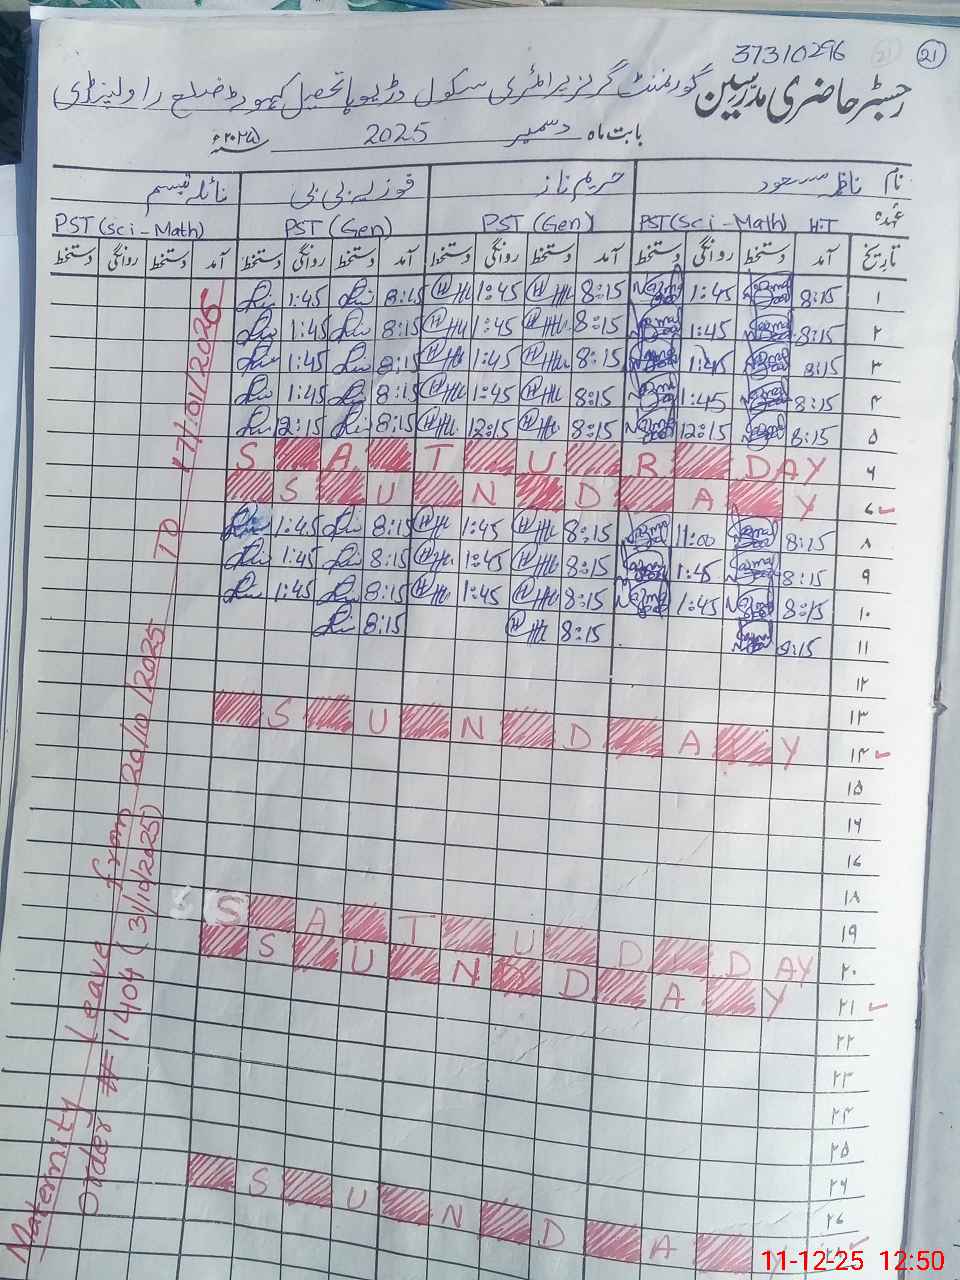 37310296 21
رجسٹر حاضری مدرسین گورنمنٹ گرلز پرائمری سکول تحصیل کہوٹہ ضلع راولپنڈی
بابت ماہ دسمبر 2025 سنہ ۲۰۲۵ء
نام حریم ناز فوزیہ بی بی نائلہ تبسم
عہدہ H.T PST(Sci-Math) PST (Gen) PST (Gen) PST (Sci-Math)
تاریخ آمد دستخط روانگی دستخط آمد دستخط روانگی دستخط آمد دستخط روانگی دستخط آمد دستخط روانگی دستخط
۱ 8:15 1:45 8:15 1:45 8:15 1:45
۲ 8:15 1:45 8:15 1:45 8:15 1:45
۳ 8:15 1:45 8:15 1:45 8:15 1:45
۴ 8:15 1:45 8:15 1:45 8:15 1:45
۵ 8:15 12:15 8:15 12:15 8:15 12:15
۶ SATURDAY
۷ SUNDAY
۸ 8:15 11:00 8:15 1:45 8:15 1:45
۹ 8:15 1:45 8:15 1:45 8:15 1:45
۱۰ 8:15 1:45 8:15 1:45 8:15 1:45
۱۱ 8:15 8:15 8:15
۱۲
۱۳
۱۴ SUNDAY
۱۵
۱۶
۱۷
۱۸
۱۹
۲۰ SATUDDAY
۲۱ SUNDAY
۲۲
۲۳
۲۴
۲۵
۲۶
۲۷
۲۸ SUNDAY
Maternity Leave from 20/10/2025 TO 17/01/2026
Order # 1404 (31/10/2025)
11-12-25 12:50